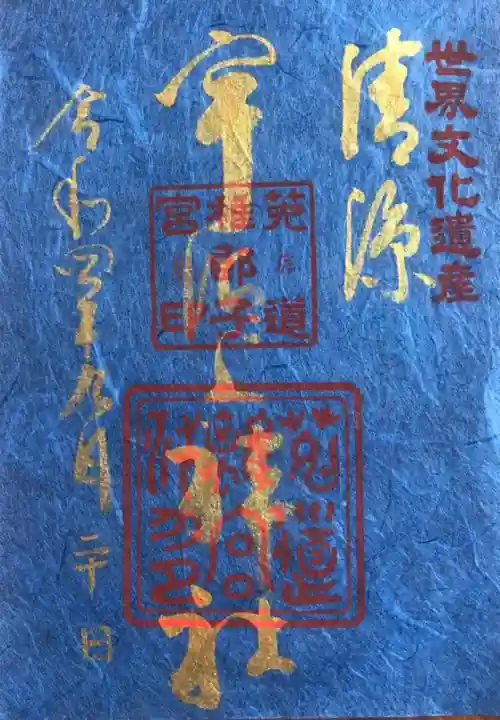 世界文化遺産
清
宇治上神社
菟道
稚郎子
宮印
令和四年九月二十日